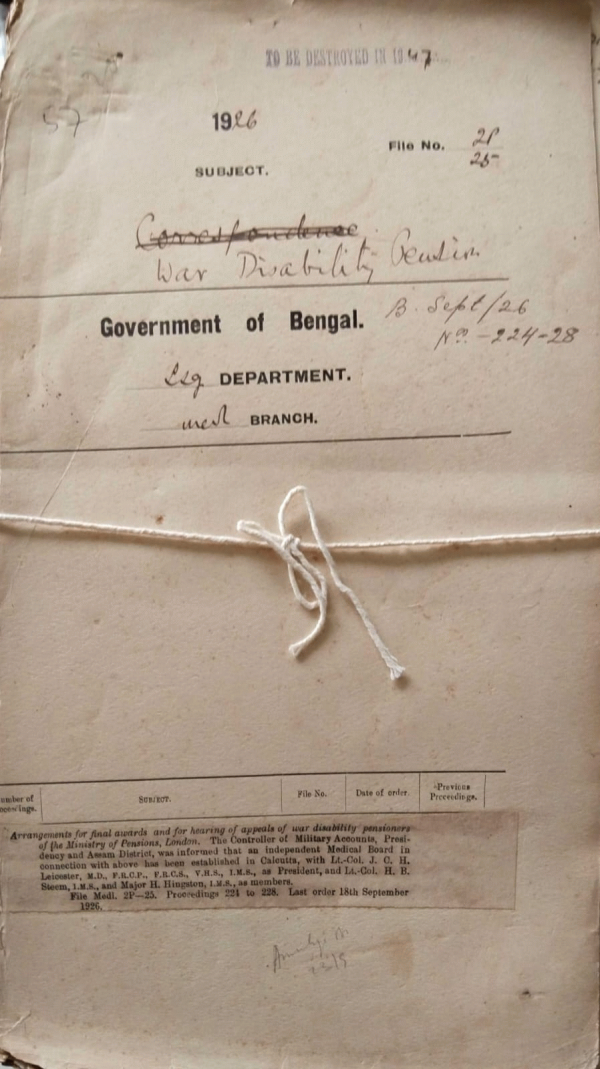 TO BE DESTROYED IN 1947
57
1926
File No. 2P
25
SUBJECT.
Correspondence
War Disability Pension
Government of Bengal.
B. Sept/26
No. -224-28
DEPARTMENT.
Med BRANCH.
umber of
oceedings.
SUBJECT.
File No.
Date of order.
Previous
Proceedings.
Arrangements for final awards and for hearing of appeals of war disability pensioners
of the Ministry of Pensions, London. The Controller of Military Accounts, Presi-
dency and Assam District, was informed that an independent Medical Board in
connection with above has been established in Calcutta, with Lt.-Col. J. C. H.
Leicester, M.D., F.R.C.P., F.R.C.S., V.H.S., I.M.S., as President, and Lt.-Col. H. B.
Steem, I.M.S., and Major H. Hingston, I.M.S., as members.
File Medl. 2P—25. Proceedings 224 to 228. Last order 18th September
1926.